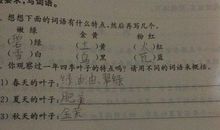 写词语。
想想下面的词语有什么特点,然后再写几个。
嫩绿 金黄 粉红
(碧)绿 (土)黄 (火)红
(雪)白 (乌)黑 (宝)蓝
你观察过一年四季叶子的特点吗?请用不同的词语来概括。
1)春天的叶子,绿油油、翠绿
2)夏天的叶子,肥
3)秋天的叶子,金黄